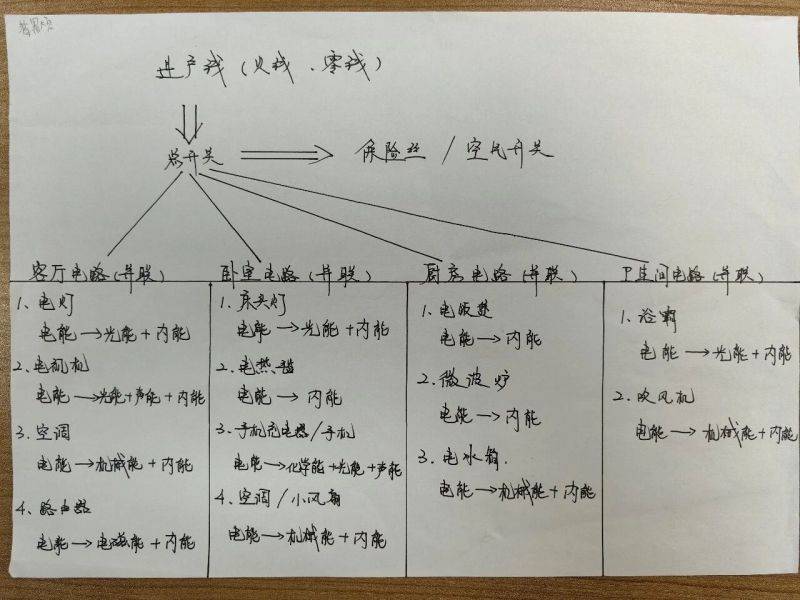 进户线（火线、零线）
总开关
保险丝 / 空气开关
客厅电路（并联）
1、电灯
电能→光能+内能
2、电视机
电能→光能+声能+内能
3、空调
电能→机械能+内能
4、路由器
电能→电磁能+内能
卧室电路（并联）
1、床头灯
电能→光能+内能
2、电热毯
电能→内能
3、手机充电器/手机
电能→化学能+光能+声能
4、空调/小风扇
电能→机械能+内能
厨房电路（并联）
1、电饭煲
电能→内能
2、微波炉
电能→内能
3、电冰箱.
电能→机械能+内能
卫生间电路（并联）
1、浴霸
电能→光能+内能
2、吹风机
电能→机械能+内能